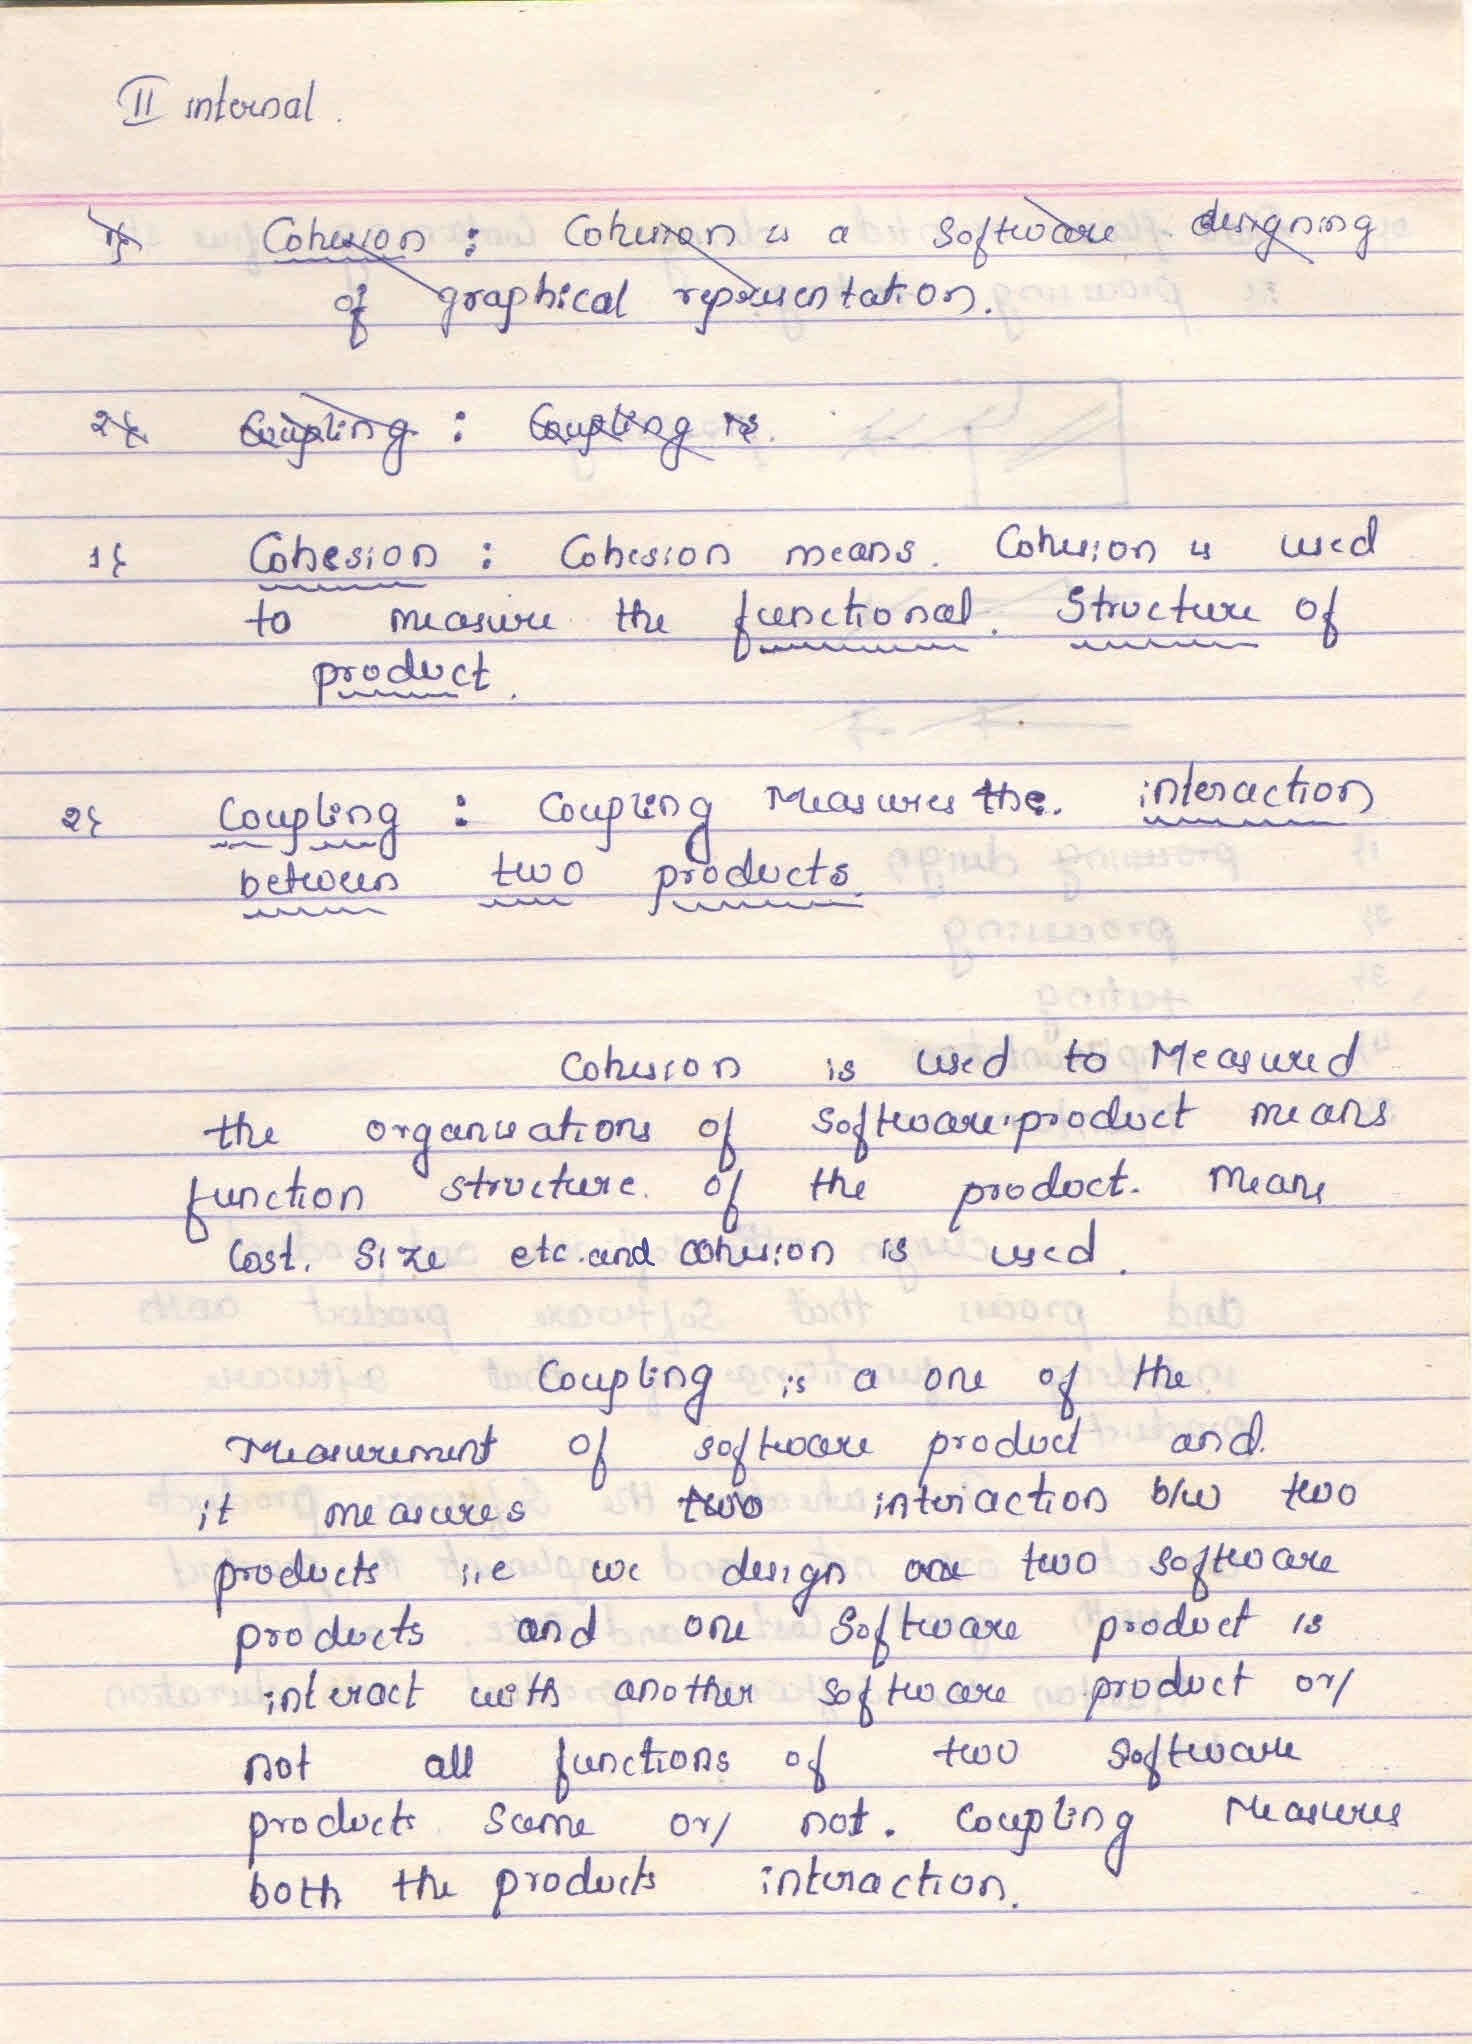 II internal.
1} Cohesion : Cohesion is a software designing
of graphical representation.
2} Coupling : Coupling is.
1} Cohesion : Cohesion means. Cohesion is used
to measure the functional. Structure of
product.
2} Coupling : Coupling Measures the. interaction
between two products.
Cohesion is used to Measured
the organisations of software product means
function structure. of the product. Means
Cost. Size etc. and cohesion is used.
Coupling is a one of the.
Measurement of software product and.
it measures two interaction b/w two
products i.e we design one two software
products and one software product is
interact with another software product or/
not all functions of two software
products same or/ not. Coupling Measures
both the products interaction.